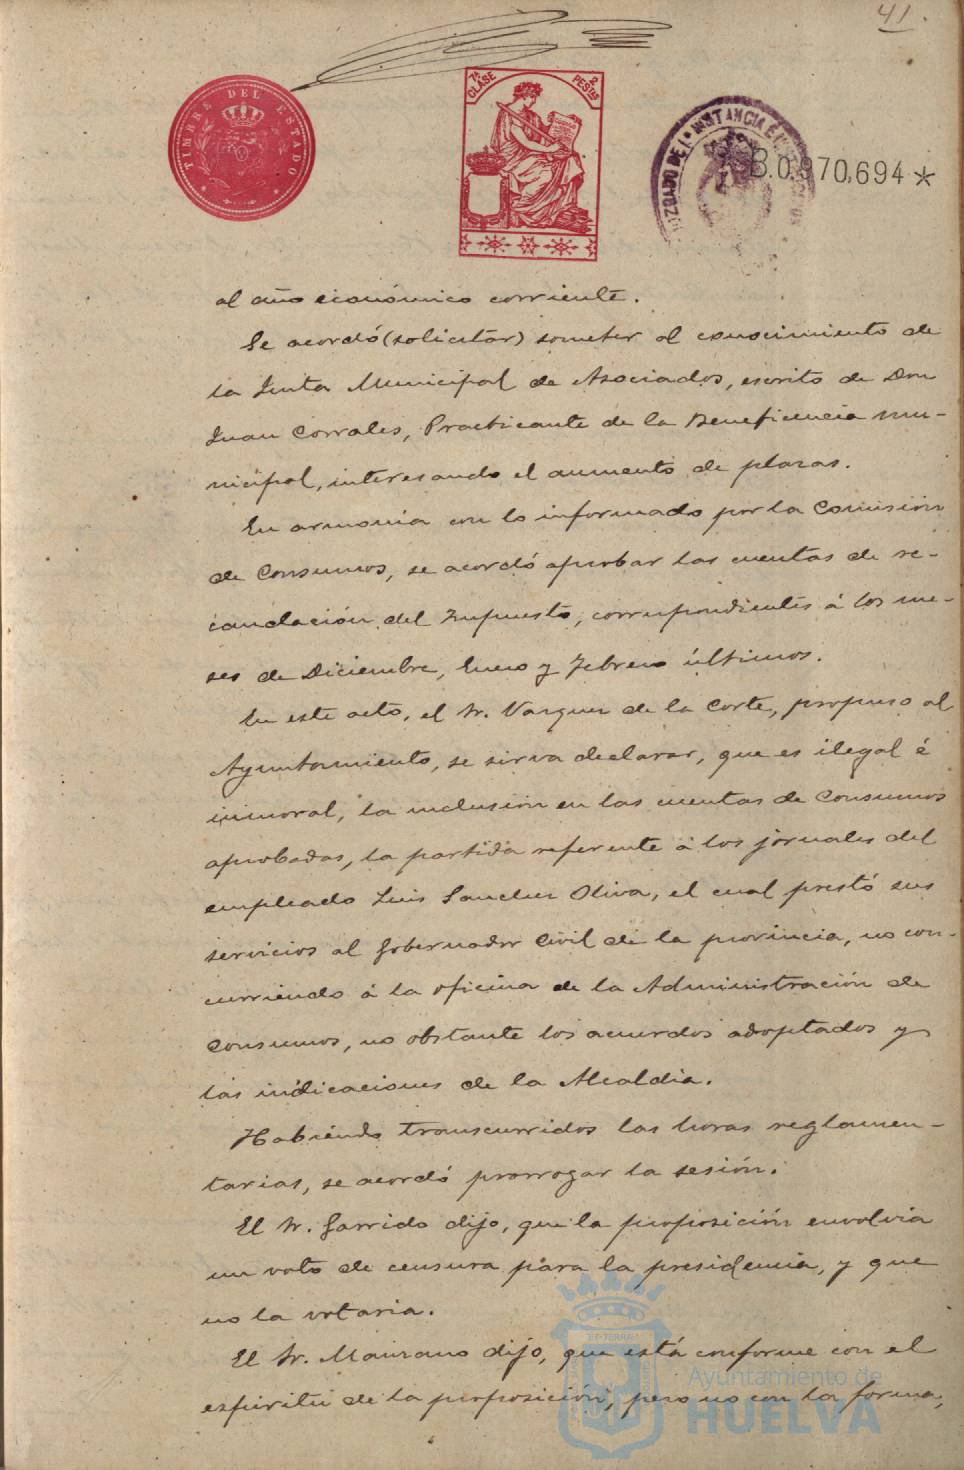 41.
TIMBRE DEL ESTADO
7ª CLASE 2 PESTAS
JUZGADO DE 1ª INSTANCIA É
B.0.970,694*
al año económico corriente.
Se acordó (solicitar) someter al conocimiento de
la Junta Municipal de Asociados, escrito de Don
Juan Corrales, Practicante de la Beneficencia mu-
nicipal, interesando el aumento de plazas.
En armonía con lo informado por la Comisión
de Consumos, se acordó aprobar las cuentas de re-
caudación del Impuesto, correspondientes á los me-
ses de Diciembre, Enero y Febrero últimos.
En este acto, el Sr. Vazquez de la Corte, propuso al
Ayuntamiento, se sirva declarar, que es ilegal é
inmoral, la inclusión en las cuentas de Consumos
aprobadas, la partida referente á los jornales del
empleado Luis Sanchez Oliva, el cual prestó sus
servicios al Gobernador Civil de la provincia, no con-
curriendo á la oficina de la Administración de
Consumos, no obstante los acuerdos adoptados y
las indicaciones de la Alcaldia.
Habiendo transcurridos las horas reglamen-
tarias, se acordó prorrogar la sesión.
El Sr. Garrido dijo, que la proposición envolvia
un voto de censura para la presidencia, y que
no la votaria.
El Sr. Manzano dijo, que está conforme con el
espiritu de la proposición, pero no con la forma,
Ayuntamiento de
HUELVA